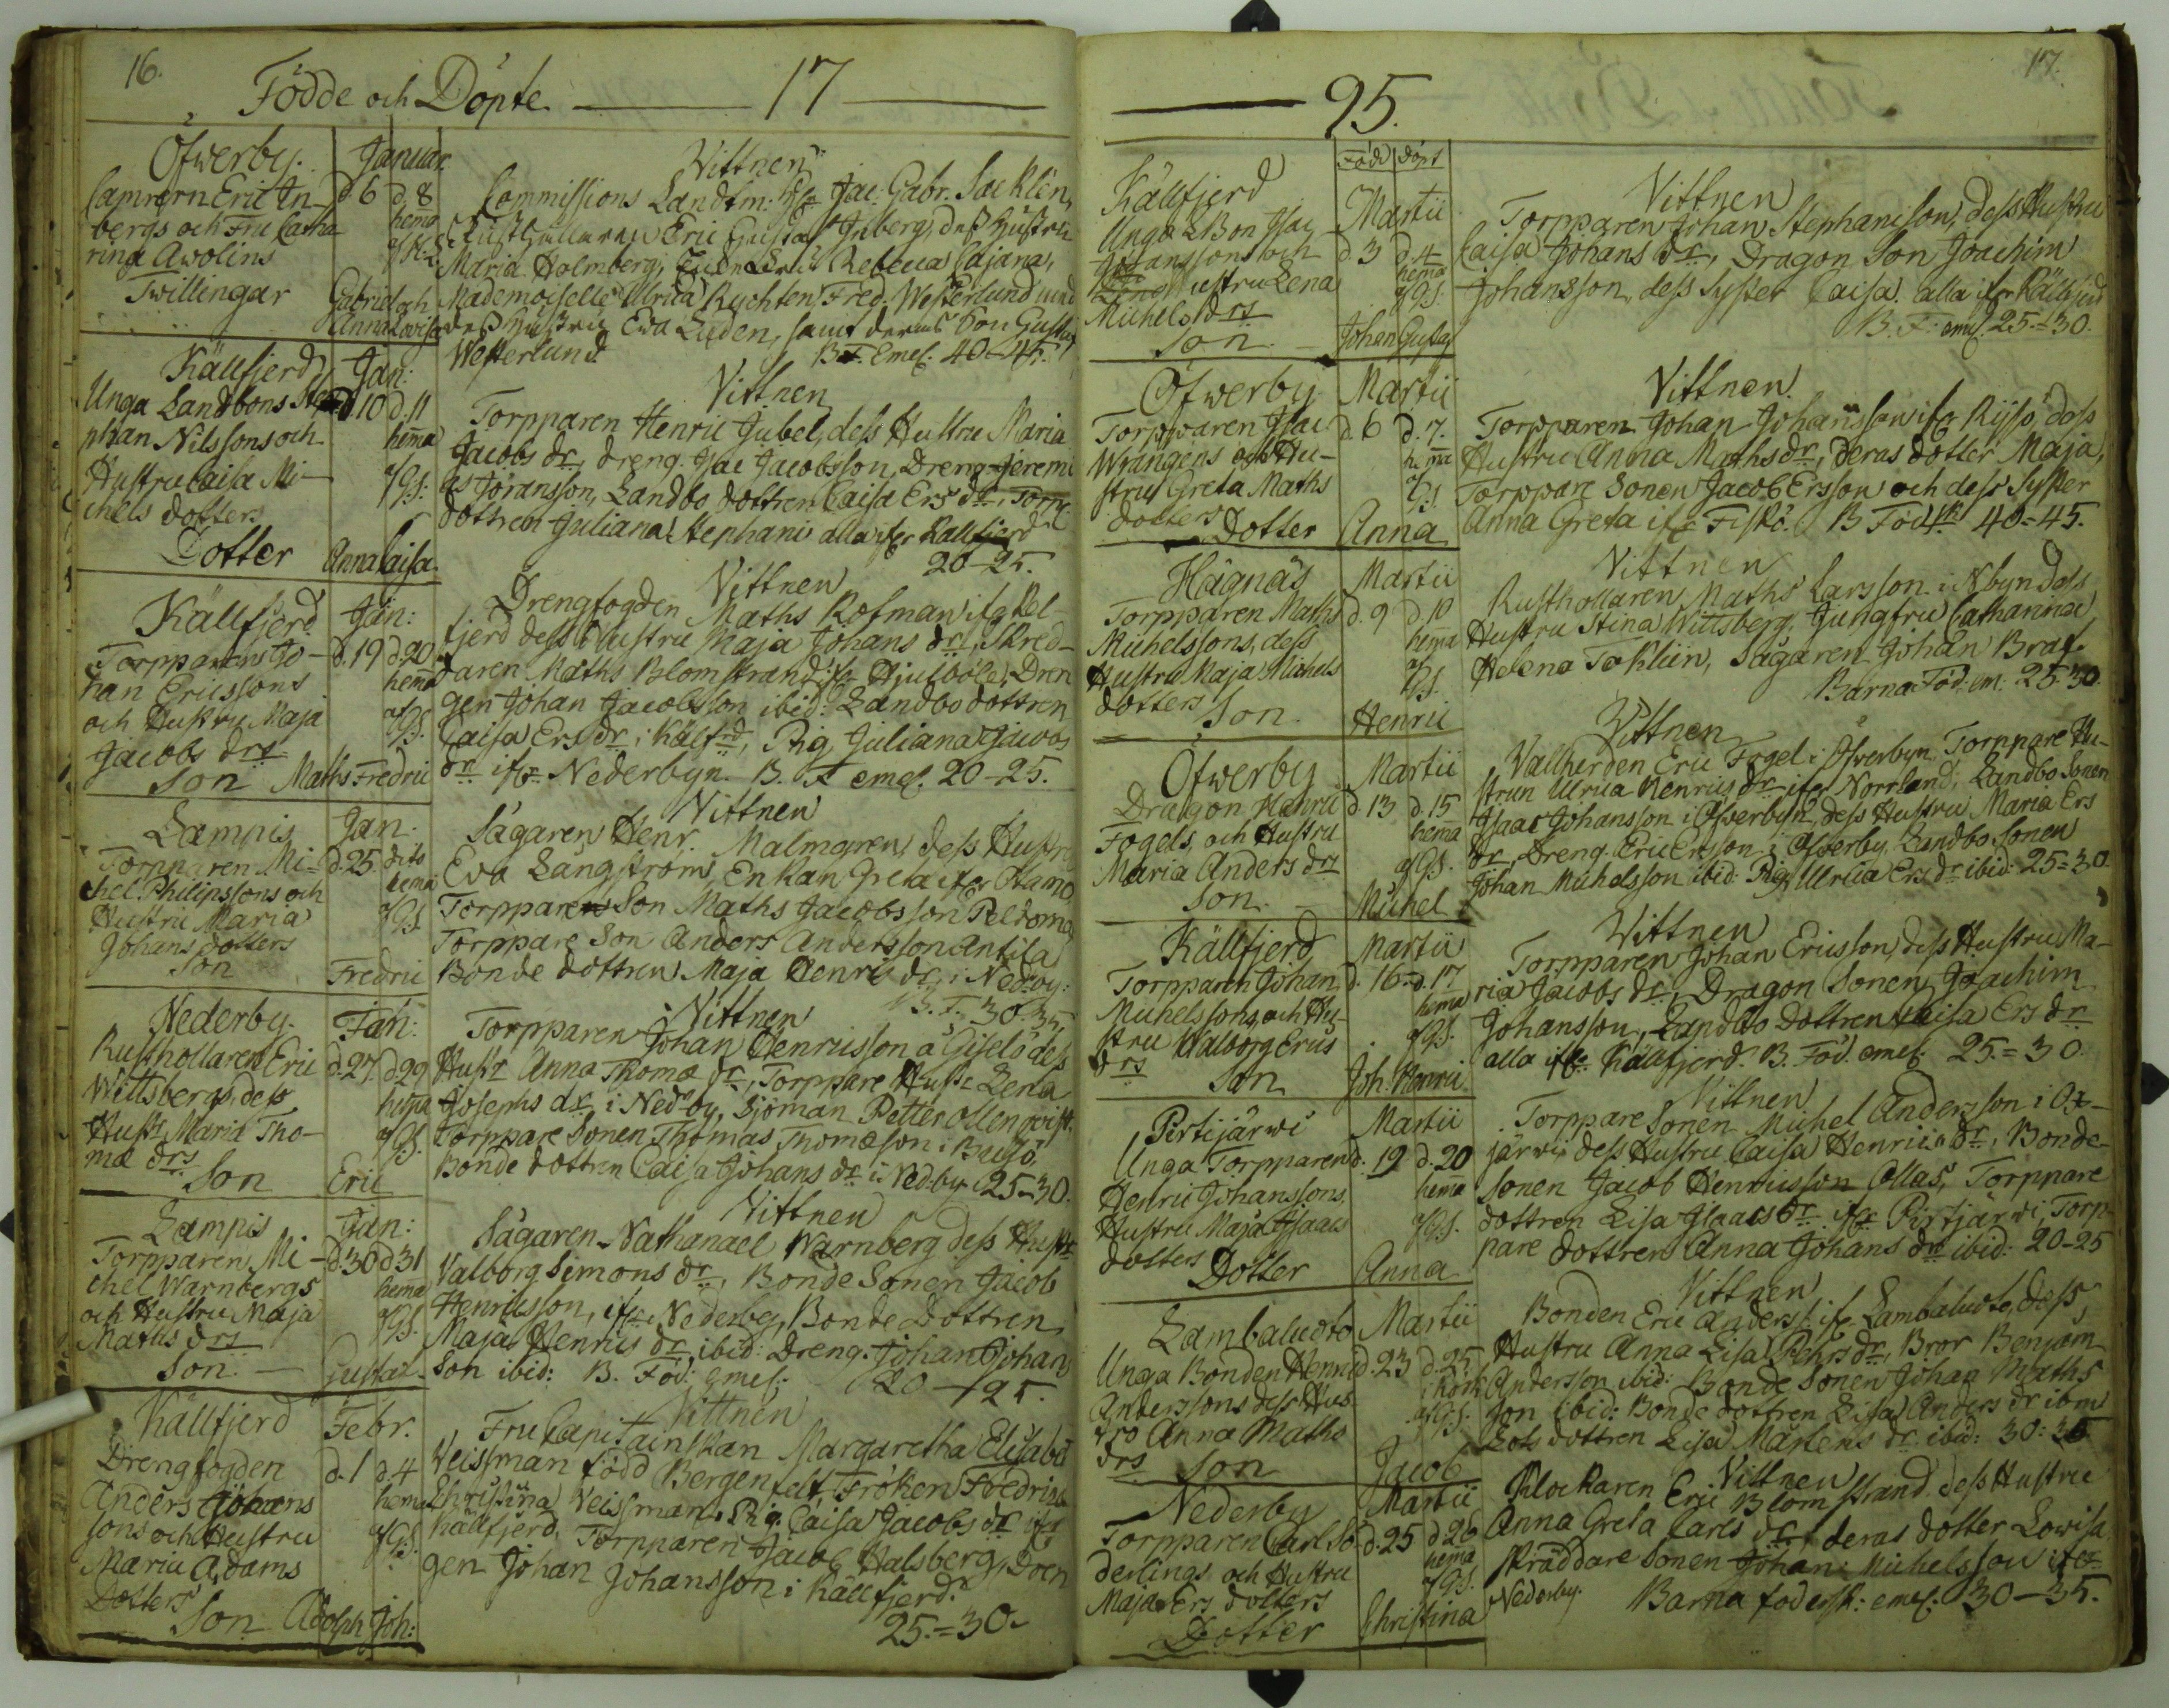 16.
Födde och Döpte 17
Öfwerby. Januar.
Camrern Eric In- d. 6 d. 8
bergs och Fru Catha- hema
rina Awolins
Twillingar Gabriel och
Anna Lovisa
Vittnen
Commissions Landtm: Jac: Gabr. Sacklén,
Eric Gustaf Inberg, dess Hustru
Maria Holmberg, Rebecca Cajana,
Mademoiselle Ulrica Rychten, Fred. Westerlund und
dess Hustru Eva Luden, samt deras Son Gustaf
Westerlund. B. F. emel. 40-45.
Källfjerd Jan:
Unga Landbons Ste- d. 10 d. 11
phan Nilssons och hema
Hustru Caisa Mi- af GS.
chels dotters
Dotter Anna Caisa
Vittnen
Torpparen Henric Jubel, dess Hustru Maria
Jacobs dr, dreng. Isac Jacobsson, Dreng Jeremi
as Jöransson, Landbo dottren Caisa Ers dr, Torp.
dottren Juliana Stephani alla ifr Källfjerd
20-25.
Källfjerd Jan:
Torpparens Jo- d. 19 d. 20
han Ericssons hema
och Hustru Maja af GS.
Jacobs drs
Son Maths Fredric
Vittnen
Drengfogden Maths Rofman ifr Kel-
fjerd dess Hustru Maja Johans dr, Skred-
daren Maths Blomstrand ifr Hjulböle, Dren
gen Johan Jacobsson ibid: Landbo dottren
Caisa Ers dr i Källfrd, Pig. Juliana Jacobs
dr ifr Nederbyn. B. F emel. 20-25.
Lampis Jan.
Torpparen Mi- d. 25. dito
chel Philipssons och hema
Hustru Maria af GS.
Johans dotters
Son Fredric
Vittnen
Sågaren Henr. Malmgren, dess Hustru
Eva Långström, Enkan Greta ifr Otamo,
Torpparen Son Maths Jacobsson Peldoma,
Torppare Son Anders Andersson Antila
Bonde dottren Maja Henric dr i Ned:by:
B. F. 30-35.
Nederby. Jan:
Rusthollaren Eric d. 27 d. 29
Wittsbergs, dess hema
Hustr Maria Tho- af GS.
mæ drs
Son Eric
Vittnen
Torpparen Johan Henricsson å Giselö dess
Hustr Anna Thomæ dr, Torppare Hustr Lena
Josephs dr i Ned-by, Sjöman Petter Ollenqvist.
Torppare Sonen Thomas Thomæson i Busö,
Bonde dottren Caisa Johans dr i Ned-by 25-30.
Lampis Jan:
Torpparen Mi- d. 30 d 31
chel Warnbergs hema
och Hustru Maja af GS.
Maths drs
Son. Gustaf
Vittnen
Sågaren Nathanael Warnberg dess Hustr
Valborg Simons dr, Bonde Sonen Jacob
Henricsson, ifr Nederby, Bonde Dottren
Maja Henrics dr ibid: Dreng. Johan Johans
son ibid: B. Föd: emel: 20-25.
Källfjerd Febr.
Drengfogden d. 1 d. 4
Anders Johans hema
sons och Hustru af GS.
Maria Adams
Dotters
Son Adolph Joh:
Vittnen
Fru Capitainskan Margaretha Elisabet
Veissman född Bergenfelt Fröken Fredrica
Christina Veissman. Pig. Caisa Jacobs dr ifr
Källfjerd, Torpparen Jacob Halsberg, Dren
gen Johan Johansson i Källfjerd.
25.=30.
17.
95.
Född döpt
Källfjerd Martii
Unga LBon Isac d. 3 d. 4
Johanssons och hema
Hustru Lena af GS.
Michels drs
Son Johan Gustaf
Vittnen
Torpparen Johan Stephanisson, dess Hustru
Caisa Johans dr, Dragon Son Joachim
Johansson, dess Syster Caisa. alla ifr Källfjerd
B. F: emel. 25.=30.
Öfwerby Martii
Torpparen Isac d. 6 d. 7.
Wrangens och Hu- hema
stru Greta Maths af GS
dotters
Dotter Anna
Vittnen.
Torpparen Johan Johansson ifr Rijsö, dess
Hustru Anna Maths dr, deras dotter Maja,
Torppare Sonen Jacob Ersson och dess Syster
Anna Greta ifr Fiskö. B Föd. 40=45.
Hagnäs Martii
Torpparen Maths d. 9 d 10
Michelssons, dess hema
Hustru Maja Michels af GS.
dotters
Son. Henric
Vittnen
Rusthollaren Maths Larsson i Nbyn dess
Hustru Stina Wittsberg, Jungfru Catharina
Helena Tocklin, Sågaren Johan Braf.
Barna Föd: em: 25-30.
Öfwerby Martii
Dragon Henric d. 13 d. 15
Fogels, och Hustru hema
Maria Anders drs af GS.
Son. Michel
Vittnen
Vallherden Eric Fogel i Öfverbyn, Torppare Hu-
strun Ulrica Henrics dr ifr Norrland, Landbo Sonen
Isaac Johansson i Öfverbyn, dess Hustru Maria Ers
dr, Dreng. Eric Ersson i Öfverby, Landbo Sonen
Johan Michelsson ibid: Pig. Ulrica Ers dr ibid: 25=30.
Källfjerd Martii
Torpparen Johan d. 16 d. 17
Michelssons, och Hu- hema
stru Walborg Erics af GS.
drs
Son Joh: Henric
Vittnen
Torpparen Johan Ericsson, dess Hustru Ma-
ria Jacobs dr, Dragon Sonen Joachim
Johansson, Landbo Dottren Caisa Ers dr
alla ifr Källfjerd. B. Föd. emel. 25.=30.
Pirtijärwi Martii
Unga Torpparen d. 19 d. 20
Henric Johanssons, hema
Hustru Maja Isaacs af GS.
dotters
Dotter Anna
Vittnen
Torppare Sonen Michel Andersson i Ox-
järwi dess Hustru Caisa Henrics dr, Bonde-
sonen Jacob Henricsson Ollas, Torppare
dottren Lisa Isaacs dr ifr Pirtjärwi, Torp-
pare dottren Anna Johans dr ibid: 20-25
Lambaluoto Martii
Unga Bonden Henric d. 23 d. 25
Anderssons dess Hus i kÿrk
trus Anna Maths af GS.
drs Son Jacob
Vittnen
Bonden Eric Anderss: ifr Lambaluoto, dess
Hustru Anna Lisa Pehrs dr, Bror Benjam
Andersson ibid: Bonde Sonen Johan Maths
son ibid: Bonde dottren Lisa Anders dr ibm
Lots dottren Lisa Mårtens dr ibid: 30: 35
Nederby Martii
Torpparen Carl Sö- d. 25 d 26
derlings och Hustru hema
Maja Ers dotters af GS.
Dotter Christina
Vittnen
Klockaren Eric Blomstrand. dess Hustru
Anna Greta Carls dr, deras dotter Lowisa
Skräddare Sonen Johan Michelsson ifr
Nederby. Barna födersk: emel: 30-35.